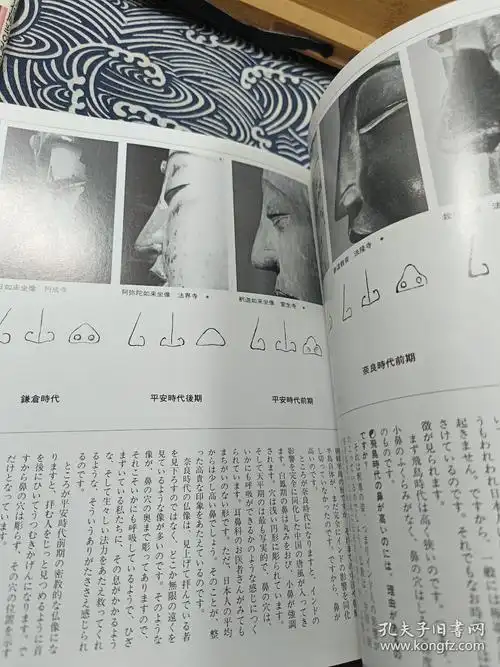 如来坐像
阿弥陀如来坐像　法界寺
釈迦如来坐像　室生寺
法隆寺
鎌倉時代
平安時代後期
平安時代前期
奈良時代前期
起きません。
さけているのです。
徴が見られます。
まず飛鳥時代は高い、狭い
小鼻のふくらみがなく、鼻の穴は
飛鳥時代の鼻が高いのには、理由が
高いのです。
ところが奈良時代になりますと、インドの
影響を完全に同化した中国の唐風が入ってき
ます。白鳳期の鼻は丸みをおび、小鼻が強調
されます。穴は浅い円形に彫られています。
そして天平期のは最も写実的で、鼻の穴は、
いかにも呼吸ができるかのような感じにつく
られています。耳鼻科のお医者さんがみても
まちがいのない形です。ただ、日本人の平均
からは少し高い鼻でしょう。そのことが、整
った高貴な印象をあたえているのです。
奈良時代の仏像は、見上げて拝んでいる者
を見下ろすのではなく、どこか無限の遠くを
見ているような像が多いのです。そのような
像が、鼻の穴の奥まで彫ってありますので、
それこそいかにも呼吸しているようで、ひざ
まずいている私たちに、その息がかかるよう
な、そして生々しい法力をあたえ救ってくれ
るような、そういうありがたささえ感じられ
るのです。
ところが平安時代前期の密教的な仏像にな
りますと、拝む人をじっと見つめるように首
を後にひいてうつむきかげんになります。で
すから鼻の穴は彫らず、その穴の位置を示す
だけとなっています。
孔夫子旧书网
www.kongfz.com